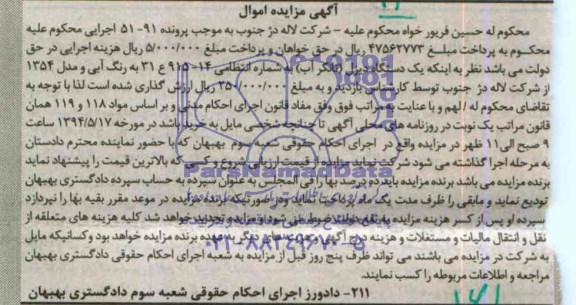 آگهی مزایده اموال
محکوم له حسین فریور خواه محکوم علیه – شرکت لاله دژ جنوب به موجب پرونده ۹۱- ۵۱ اجرایی محکوم علیه
محکوم به پرداخت مبلغ ۴۷۵۶۲۷۷۳ ریال در حق خواهان و پرداخت مبلغ ۵/۰۰۰/۰۰۰ ریال هزینه اجرایی در حق
دولت می باشد نظر به اینکه یک دستگاه تانکر آب) به شماره انتظامی ۱۴- ۹۱۵ ع ۳۱ به رنگ آبی و مدل ۱۳۵۴
از شرکت لاله دژ جنوب توسط کارشناس بازدید و به مبلغ ریال ارزش گذاری شده است لذا با توجه به
تقاضای محکوم له / لهم و با عنایت به مراتب فوق وفق مفاد قانون اجرای احکام مدنی و بر اساس مواد ۱۱۸ و ۱۱۹ همان
قانون مراتب یک نوبت در روزنامه های محلی آگهی تا چنانچه شخصی مایل به خرید باشد در مورخه ۱۳۹۴/۵/۱۷ ساعت
۹ صبح الی ۱۱ ظهر در مزایده واقع در اجرای احکام حقوقی شعبه سوم بهبهان که با حضور نماینده محترم دادستان
به مرحله اجرا گذاشته می شود شرکت نماید مزایده از قیمت ارزیابی شروع و کسی که بالاترین قیمت را پیشنهاد نماید
برنده مزایده می باشد برنده مزایده باید ده درصد بها را فی المجلس به عنوان سپرده به حساب سپرده دادگستری بهبهان
تودیع نماید و مابقی را ظرف مدت یک ماه پرداخت نماید و در صورتیکه برنده مزایده در موعد مقرر بقیه بها را نپردازد
سپرده او پس از کسر هزینه مزایده به نفع دولت ضبط می شود و مزایده تجدید خواهد شد کلیه هزینه های متعلقه از
نقل و انتقال مالیات و مستغلات و هزینه درج آگهی برنده مزایده خواهد بود و کسانیکه مایل
به شرکت در مزایده می باشند می تواند ظرف پنج روز قبل از مزایده به شعبه اجرای احکام حقوقی دادگستری بهبهان
مراجعه و اطلاعات مربوطه را کسب نمایند.
۲۱۱- دادورز اجرای احکام حقوقی شعبه سوم دادگستری بهبهان
ParsNamadData
۰۲۱-۸۸۳۴۹۶۷۰-۵